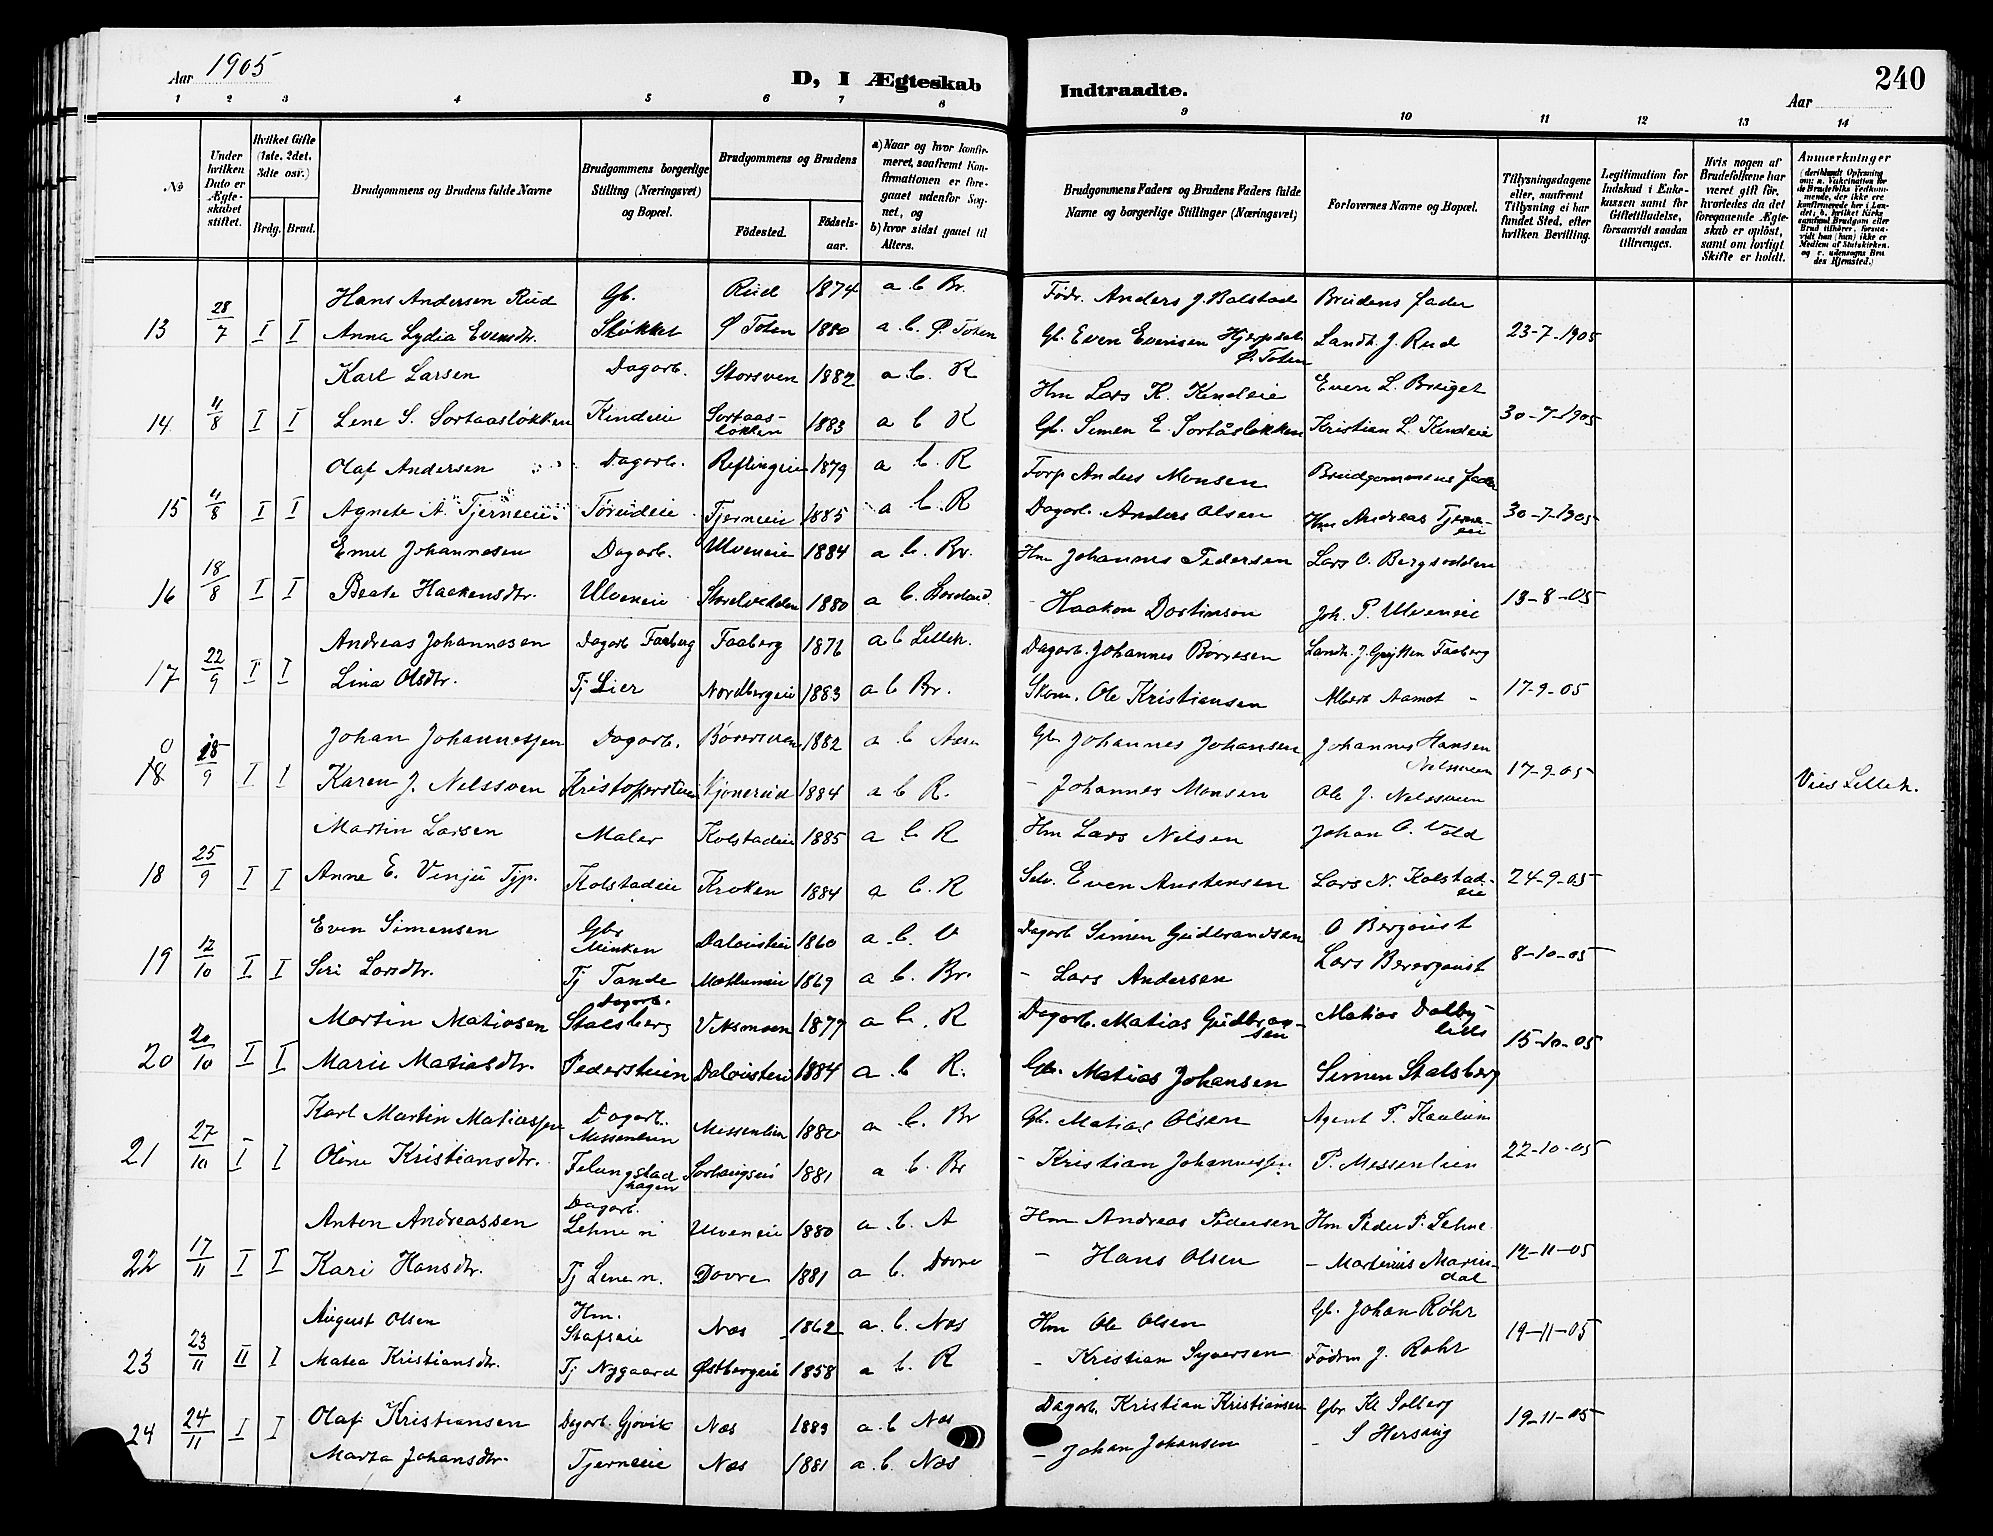 Aar 1905
D, I Ægteskab
Indtraadte.
Aar
240
1 2 3 4 5 6 7 8 9 10 11 12 13 14
No
Under hvilken Dato er Ægteskabet stiftet.
Hvilket Gifte (1ste, 2det, 3die osv.)
Brdg. Brud.
Brudgommens og Brudens fulde Navne
Brudgommens borgerlige Stilling (Næringsvei) og Bopæl.
Brudgommens og Brudens
Fødested. Fødselsaar.
a) Naar og hvor konfirmeret, saafremt Konfirmationen er foregaaet udenfor Sognet, og
b) hvor sidst gaaet til Alters.
Brudgommens Faders og Brudens Faders fulde Navne og borgerlige Stillinger (Næringsvei)
Forlovernes Navne og Bopæl.
Tillysningsdagene eller, saafremt Tillysning ei har fundet Sted, efter hvilken Bevilling.
Legitimation for Indskud i Enkekassen samt for Giftetilladelse, forsaavidt saadan tiltrænges.
Hvis nogen af Brudefolkene har været gift før, hvorledes da det foregaaende Ægteskab er opløst, samt om lovligt Skifte er holdt.
Anmærkninger
Hans Andersen Rud Gb. Rud 1874 a b Br. Fødr. Anders J. Bolstad Brudens fader
13 28/7 I I Anna Lydia Evensdtr. Støkket Ø Toten 1880 a. b. Ø. Toten Gb. Even Evensen Ø. Toten Landh. J. Rud 23-7-1905
Karl Larsen Dagarb. Storsven 1882 a. b. R Hm Lars K. Kindeie Even L.
14 4/8 I I Lene S. Sortaasløkken Kindeie Sortaasløkken 1883 a b R Gb. Simen E. Sortåsløkken Kristian L. Kindeie 30-7-1905
Olaf Andersen Dagarb. Reflingeie 1879 a b. R Forp Anders Monsen Brudgommens fader
15 4/8 I I Agnete A. Tjerneeie Tørudeie Tjerneie 1885 a b. R Dagarb. Anders Olsen Hm Andreas Tjerneeie 30-7-1905
Emil Johannesen Dagarb. Ulveneie 1884 a b. Br. Hm Johannes Pedersen Lars O. Bergsodden
16 18/8 I I Beate Haakensdtr. Ulveneie 1880 a b. - Haakon Joh. P. Ulveneie 13-8-05
Andreas Johannesen Dagarb Faaberg Faaberg 1876 a b Lilleh. Dagarb. Johannes Børresen Landh. J. Faaberg
17 22/9 I I Lina Olsdtr. Tj Lier Nordbergeie 1883 a b Br. Skom. Ole Kristiansen Albert Aamot - 17-9-05
Johan Johannessen Dagarb. 1882 a b Gb. Johannes Johansen Johannes Hansen Nelsveen
18 /9 I I Karen J. Nelssven Kristofferstuen 1884 a b R. - Johannes Monsen Ole J. Nelsveen 17-9-05 Vies Lilleh.
Martin Larsen Maler Kolstadeie 1885 a b. R Hm Lars Nilsen Johan O. Vold
18 25/9 I I Anne E. Vinju Tjp. Kolstadeie Kroken 1884 a b. R Selv. Even Austensen Lars N. Kolstadeie 24-9-05
Even Simensen Gbr Minken 1860 a. b. V Dagarb Simen Gudbrandsen O Berqvist
19 12/10 I I Siri Larsdtr. Tj Tande 1869 a b. Br. - Lars Andersen Lars 8-10-05
Martin Matiasen Dagarb. Stalsberg Viksmoen 1877 a b. R Dagarb. Matias Gudbransen Matias Dalby
20 20/10 I I Marie Matiasdtr. Pedersteien 1884 a. b R. Gb. Matias Johansen Simen Stalsberg 15-10-05
Karl Martin Matiassen Dagarb. Messenlien Messenlien 1880 a b. Br Gb. Matias Olsen Agent P. Kaulum
21 27/10 I I Oline Kristiansdtr. 1881 a b. Br - Kristian Johannessen P. Messenlien 22-10-05
Anton Andreassen Dagarb. Lehne n Ulveneie 1880 a. b. A Hm Andreas Pedersen Hm Peder P. Lehne
22 17/11 I I Kari Hansdtr. Tj Lene n. Dovre 1881 a b. Dovre - Hans Olsen - Martinius Mariendal 12-11-05
August Olsen Hm. Næs 1862 a. b. Næs Hm Ole Olsen Gb. Johan Røhr
23 23/11 II I Matea Kristiansdtr. Tj Nygaard Østbergeie 1858 a b. R - Kristian Syversen Fødrm J. Røhr 19-11-05
Olaf Kristiansen Dagarb. Gjøvik Næs 1883 a. b Næs Dagarb. Kristian Kristiansen Gbr Kl Solberg
24 24/11 I I Marta Johansdtr. Tjerneeie Næs 1881 a. b. Næs - Johan Johansen - S Hersaug 19-11-05